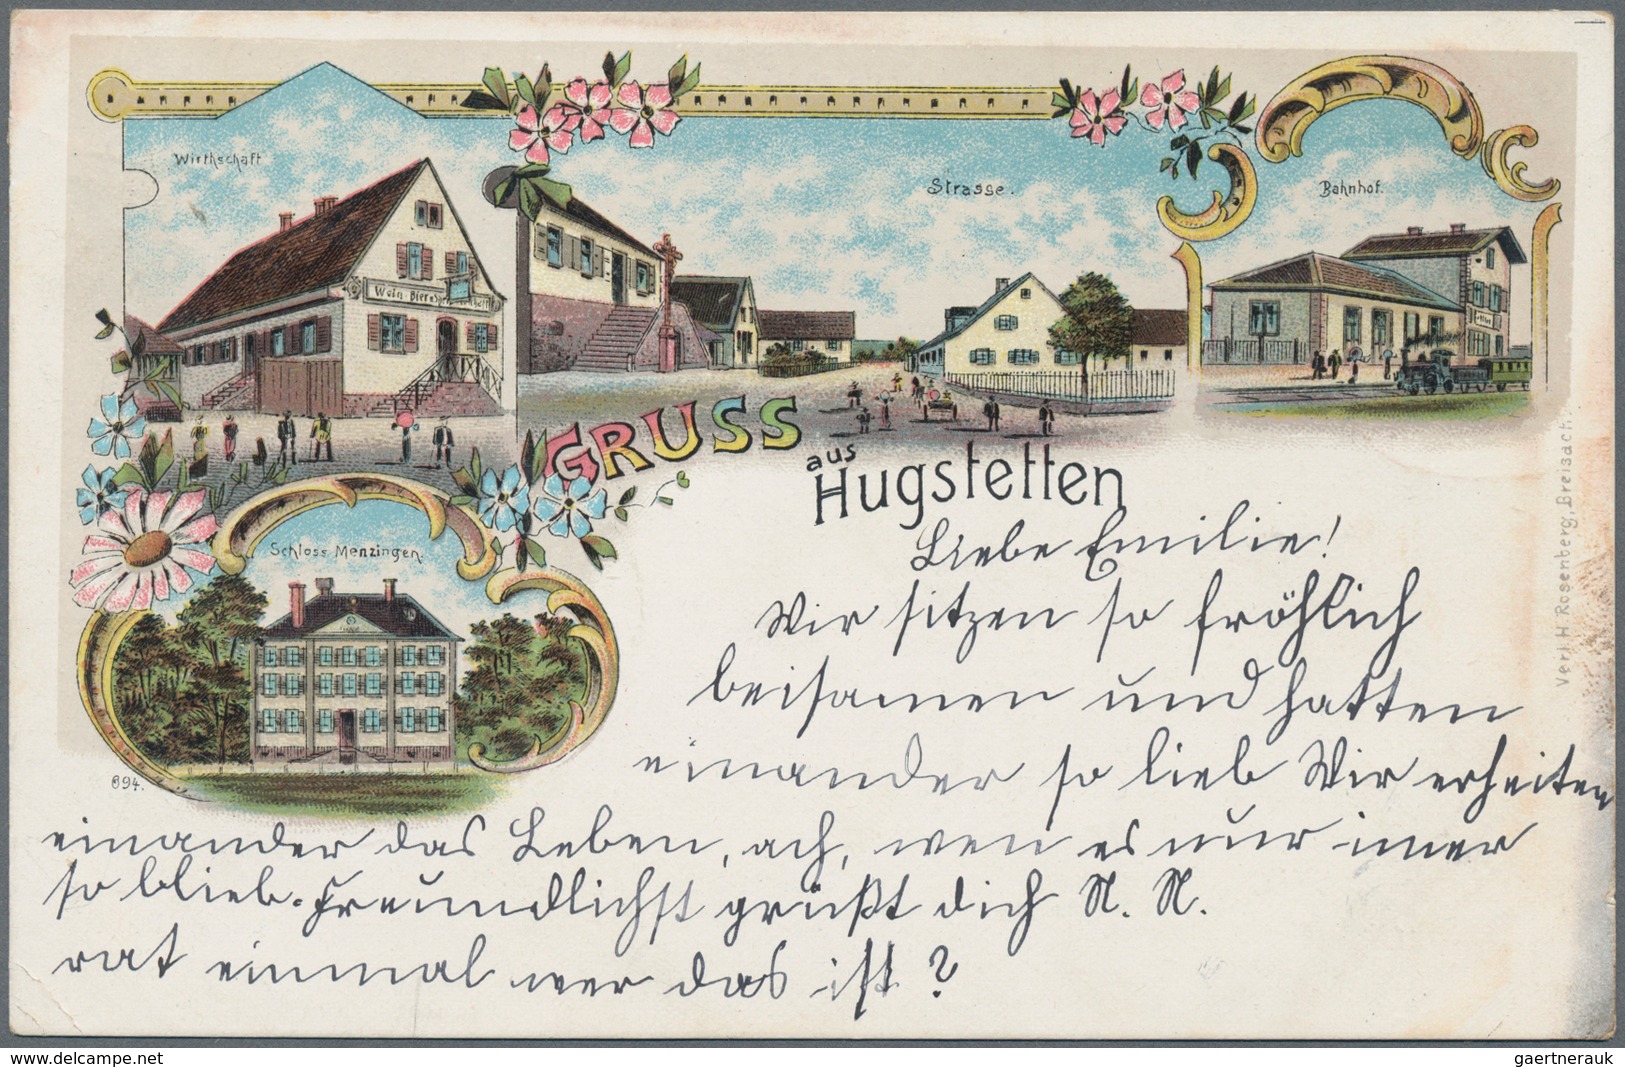 Wirthschaft
Strasse.
Bahnhof.
GRUSS
aus
Hugstetten
Schloss Menzingen.
694.
Verl. H. Rosenberg, Breisach.
Liebe Emilie!
Wir sitzen so fröhlich
beisamen und hatten
einander so lieb Wir erheiten
einander das Leben, ach, wen es nur imer
so blieb. Freundlichst grüßt dich N. N.
rat einmal wer das ist?
www.delcampe.net
gaertnerauk